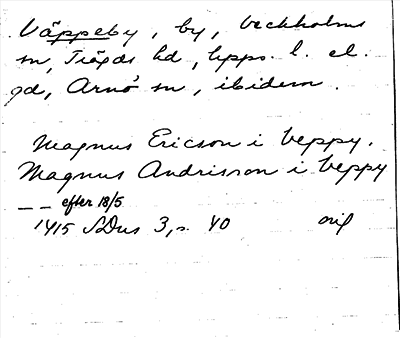 Väppeby, by, Veckholms
sn, Trögds hd, Upps. l. el.
gd, Arnö sn, ibidem.
Magnus Ericson i Veppy.
Magnus Andrisson i Veppy
— — efter 18/5
1415 SDns 3, s. 40 orig